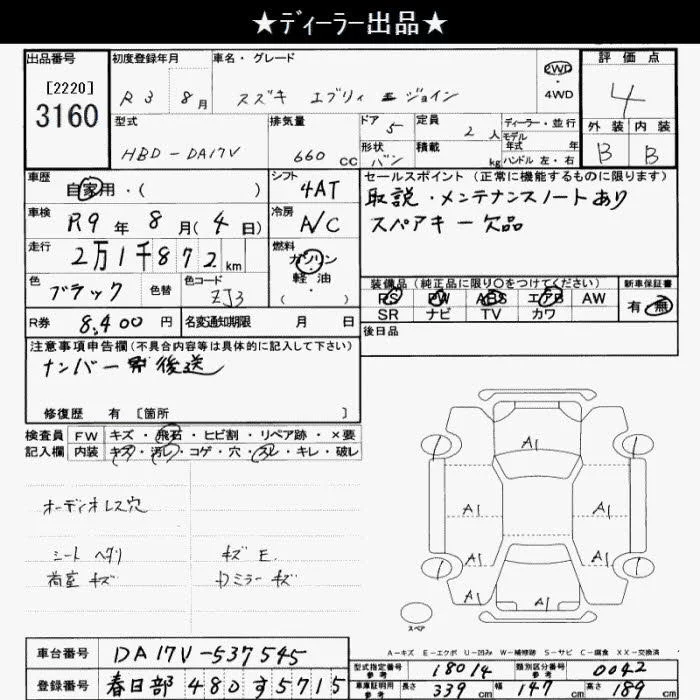 ★ディーラー出品★
出品番号 初度登録年月 車名・グレード 2WD 評価点
[2220] R3 8月 スズキ エブリィ ジョイン ・ 4
3160 4WD
型式 排気量 ドア 5 定員 2人 ディーラー・並行 外装 内装
HBD-DA17V 660 CC 形状 バン 積載 kg モデル年式 年 B B
ハンドル 左・右
車歴 自家用・( ) シフト 4AT セールスポイント(正常に機能するものに限ります)
車検 R9年8月(4日) 冷房 A/C 取説・メンテナンスノートあり
走行 2万1千872km 燃料 ガソリン スペアキー欠品
・軽油・
( )
色 ブラック 色替 色コード ZJ3 装備品(純正品に限り○をつけてください) 新車保証書
PS PW ABS エアB AW 有・無
R券 8,400円 名変通知期限 月 日 SR ナビ TV カワ
注意事項申告欄(不具合内容等は具体的に記入して下さい) 後日品
ナンバー 後送
修復歴 有 [箇所 ]
検査員 FW キズ・飛石・ヒビ割・リペア跡・×要
記入欄 内装 キズ・汚レ・コゲ・穴・スレ・キレ・破レ
A1
オーディオレス穴
A1 A1
A1 A1
シート ヘタリ キズ E
荷室 キズ Dミラー キズ
A1 A1
スペア
A-キズ E-エクボ U-凹み W-補修跡 S-サビ C-腐食 XX-交換済
車台番号 DA17V-537545 型式指定番号 参考 18014 類別区分番号 参考 0042
登録番号 春日部 480す5715 車庫証明用 参考 長さ 339cm 幅 147cm 高さ 189cm